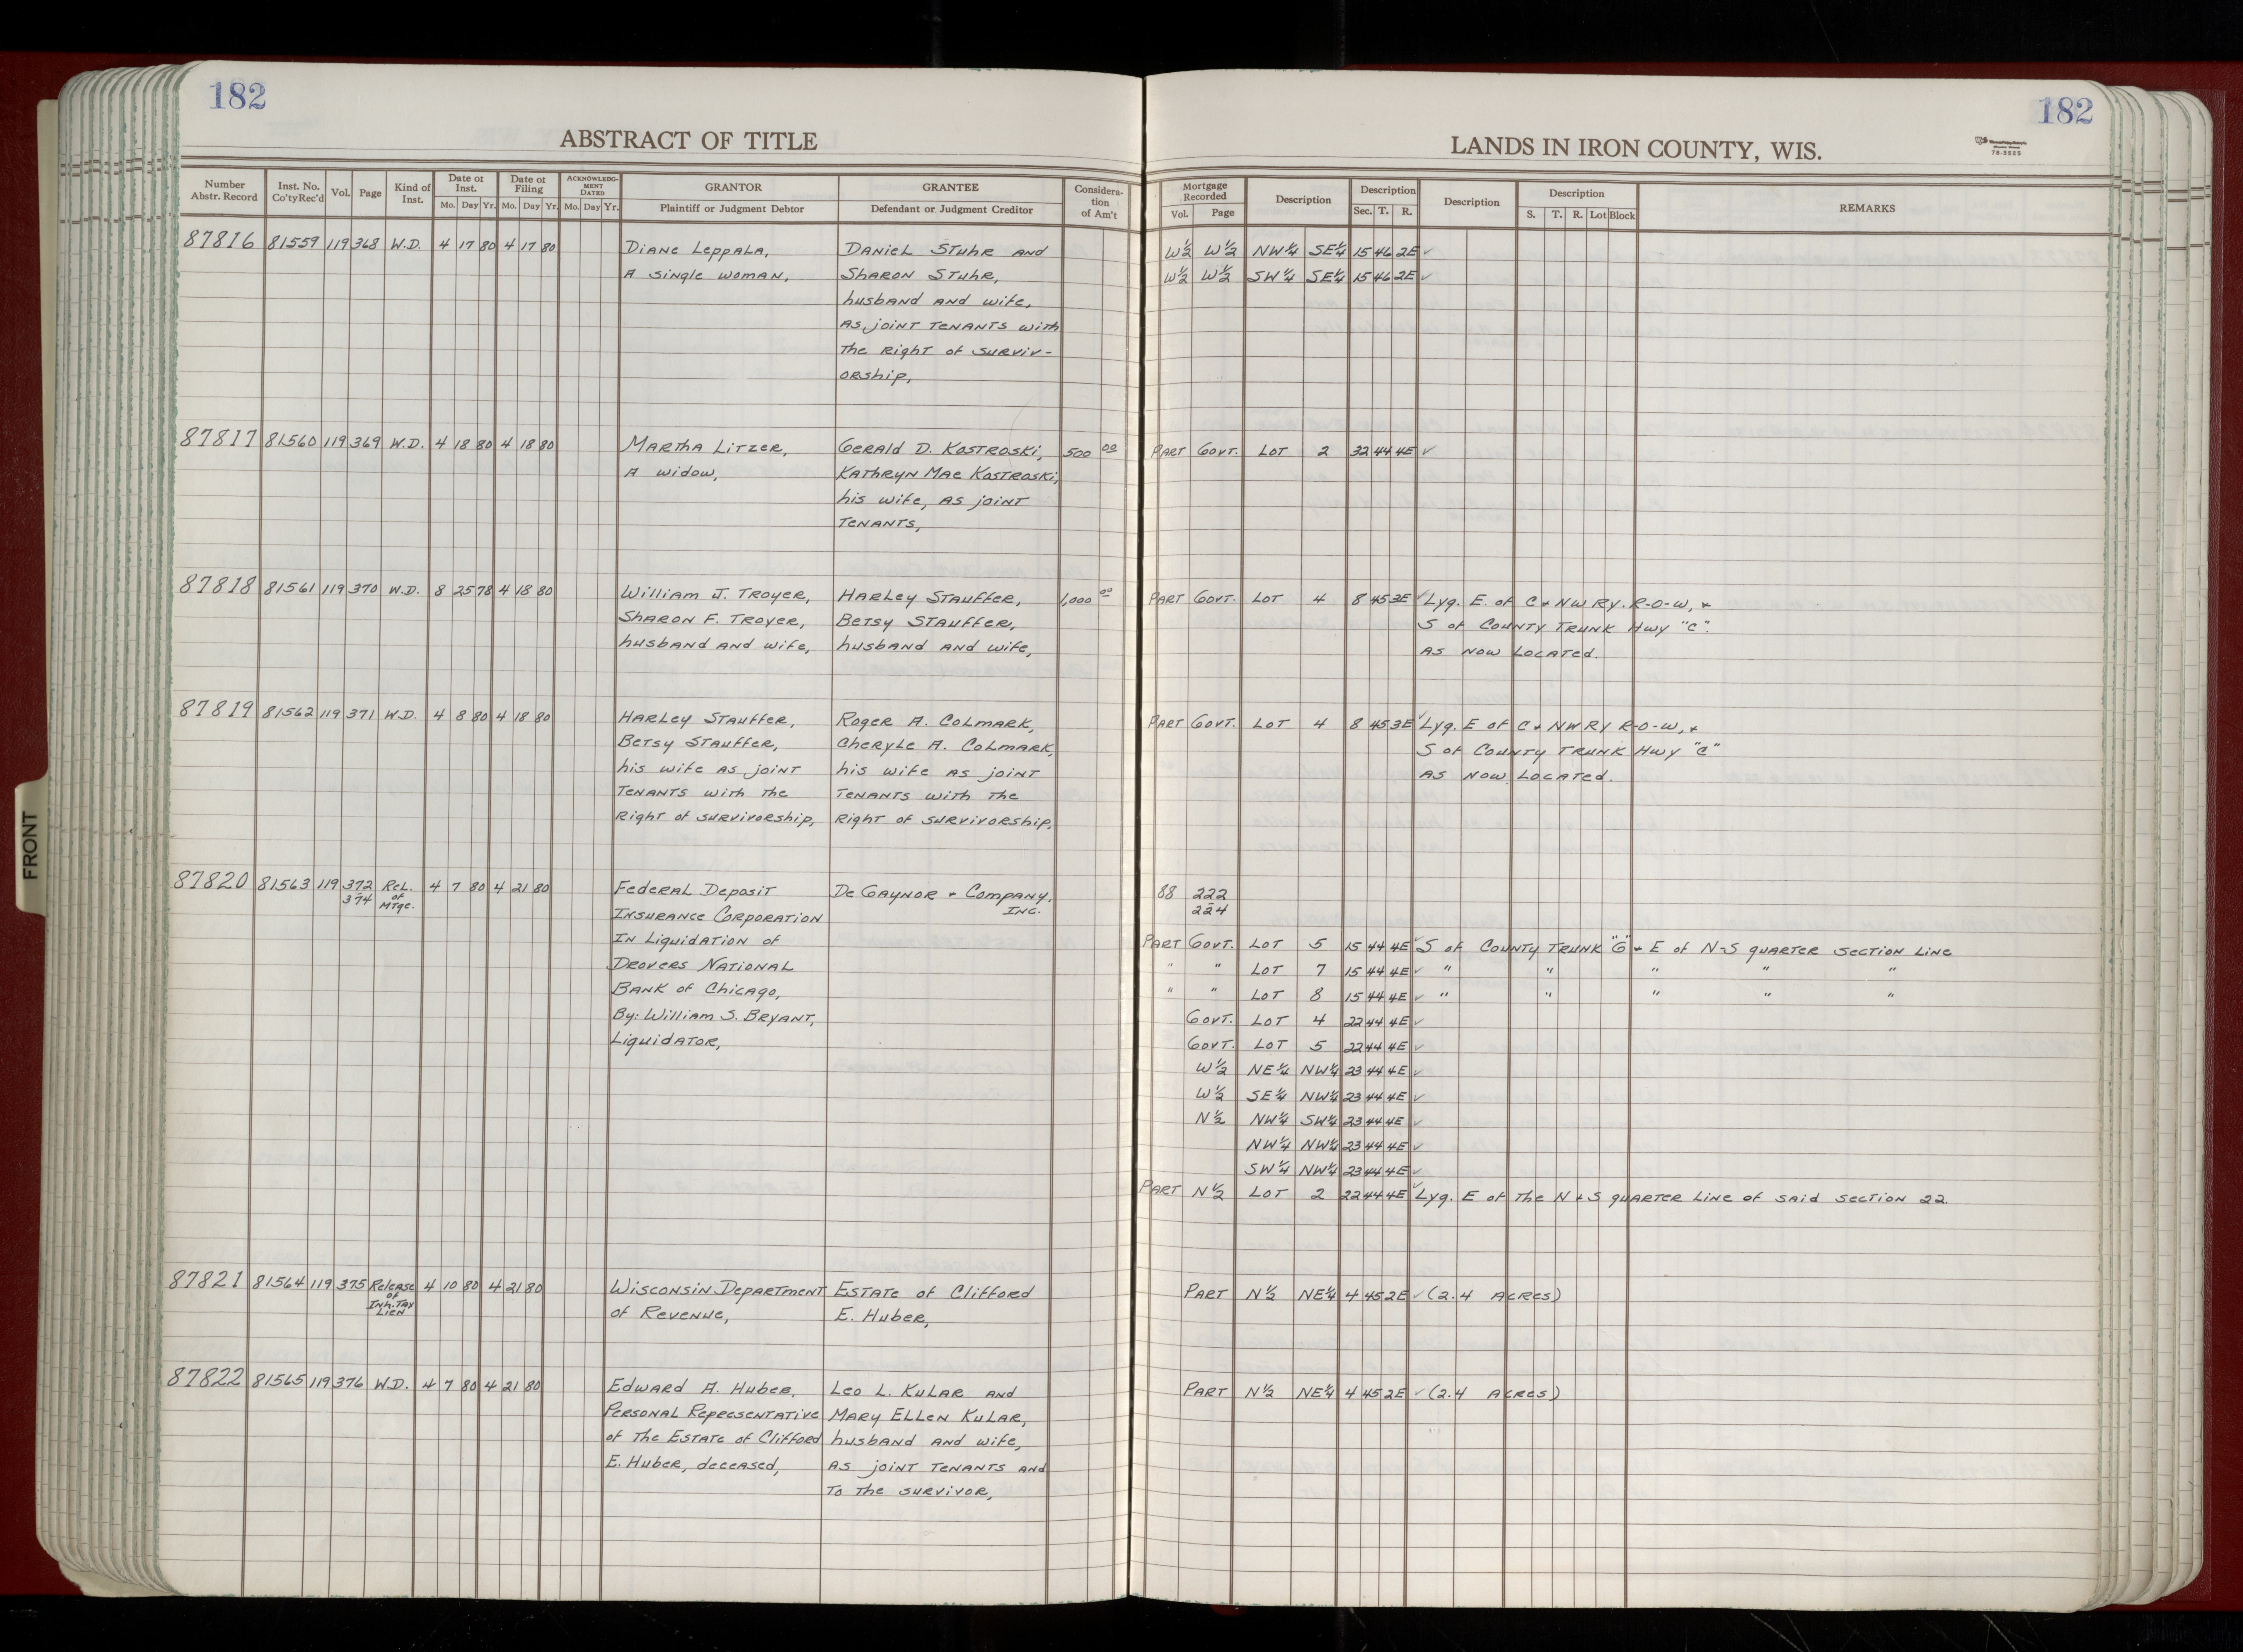 182
182
ABSTRACT OF TITLE
LANDS IN IRON COUNTY, WIS.
78-3525
Number Abstr. Record Inst. No. Co'ty Rec'd Vol. Page Kind of Inst. Date of Inst. Mo. Day Yr. Date of Filing Mo. Day Yr. ACKNOWLEDGMENT DATED Mo. Day Yr. GRANTOR Plaintiff or Judgment Debtor GRANTEE Defendant or Judgment Creditor Consideration of Am't
Mortgage Recorded Vol. Page Description Description Sec. T. R. Description Description S. T. R. Lot Block REMARKS
87816 81559 119 368 W.D. 4 17 80 4 17 80 Diane Leppala, Daniel Stuhr and W½ W½ NW¼ SE¼ 15 46 2E ✓
A single woman, Sharon Stuhr, W½ W½ SW¼ SE¼ 15 46 2E ✓
husband and wife,
as joint tenants with
the right of surviv-
orship,
87817 81560 119 369 W.D. 4 18 80 4 18 80 Martha Litzer, Gerald D. Kostroski, 500 00 Part Govt. Lot 2 32 44 4E ✓
A widow, Kathryn Mae Kostroski,
his wife, as joint
tenants,
87818 81561 119 370 W.D. 8 25 78 4 18 80 William J. Troyer, Harley Stauffer, 1,000 00 Part Govt. Lot 4 8 45 3E ✓ Lyg. E. of C + NW RY. R-O-W, +
Sharon F. Troyer, Betsy Stauffer, S of County Trunk Hwy "C".
husband and wife, husband and wife, as now located.
87819 81562 119 371 W.D. 4 8 80 4 18 80 Harley Stauffer, Roger A. Colmark, Part Govt. Lot 4 8 45 3E ✓ Lyg. E of C + NW RY R-O-W, +
Betsy Stauffer, Cheryle A. Colmark, S of County Trunk Hwy "C"
his wife as joint his wife as joint as now located.
tenants with the tenants with the
right of survivorship, right of survivorship,
87820 81563 119 372 - 374 Rel. of Mtge. 4 7 80 4 21 80 Federal Deposit De Gaynor + Company, Inc. 88 222 - 224
Insurance Corporation
In Liquidation of Part Govt. Lot 5 15 44 4E ✓ S of County Trunk "G" + E of N-S quarter section line
Drovers National " " Lot 7 15 44 4E ✓ " " " " "
Bank of Chicago, " " Lot 8 15 44 4E ✓ " " " " "
By: William S. Bryant, Govt. Lot 4 22 44 4E ✓
Liquidator, Govt. Lot 5 22 44 4E ✓
W½ NE¼ NW¼ 23 44 4E ✓
W½ SE¼ NW¼ 23 44 4E ✓
N½ NW¼ SW¼ 23 44 4E ✓
NW¼ NW¼ 23 44 4E ✓
SW¼ NW¼ 23 44 4E ✓
Part N½ Lot 2 22 44 4E ✓ Lyg. E of the N + S quarter line of said section 22.
87821 81564 119 375 Release of Inh. Tax Lien 4 10 80 4 21 80 Wisconsin Department Estate of Clifford Part N½ NE¼ 4 45 2E ✓ (2.4 Acres)
of Revenue, E. Huber,
87822 81565 119 376 W.D. 4 7 80 4 21 80 Edward A. Huber, Leo L. Kular and Part N½ NE¼ 4 45 2E ✓ (2.4 Acres)
Personal Representative Mary Ellen Kular,
of the Estate of Clifford husband and wife,
E. Huber, deceased, as joint tenants and
to the survivor,
FRONT